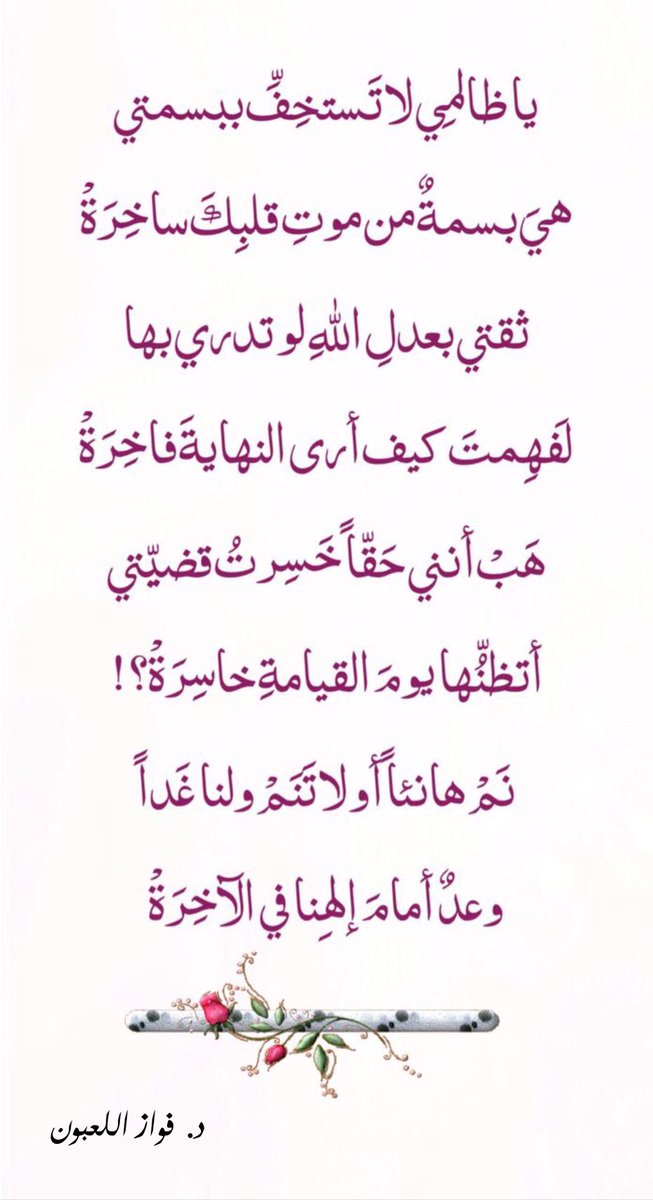 يا ظالمِي لا تَستخِفِّ ببسمتي
هيَ بسمةٌ من موتِ قلبِكَ ساخِرَةْ
ثقتي بعدلِ اللهِ لو تدري بها
لَفَهِمتَ كيف أرى النهايةَ فاخِرَةْ
هَبْ أنني حَقّاً خَسِرتُ قضيّتي
أتظنُّها يومَ القيامةِ خاسِرَةْ؟!
نَمْ هانئاً أو لا تَنَمْ ولنا غَداً
وعدٌ أمامَ إلهِنا في الآخِرَةْ
د. فواز اللعبون